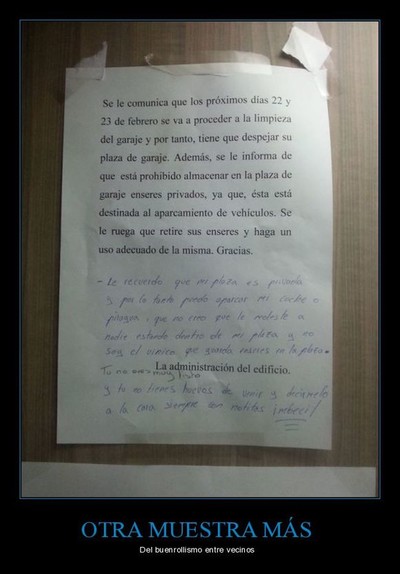 Se le comunica que los próximos días 22 y
23 de febrero se va a proceder a la limpieza
del garaje y por tanto, tiene que despejar su
plaza de garaje. Además, se le informa de
que está prohibido almacenar en la plaza de
garaje enseres privados, ya que, ésta está
destinada al aparcamiento de vehículos. Se
le ruega que retire sus enseres y haga un
uso adecuado de la misma. Gracias.
- Le recuerdo que mi plaza es privada
y por lo tanto puedo aparcar mi coche o
piragua, que no creo que le moleste a
nadie estando dentro de mi plaza y no
soy el único que guarda enseres en la plaza.
La administración del edificio.
Tu no eres muy lista
y tu no tienes huevos de venir y decírmelo
a la cara siempre con notitas ¡imbecil!
OTRA MUESTRA MÁS
Del buenrollismo entre vecinos